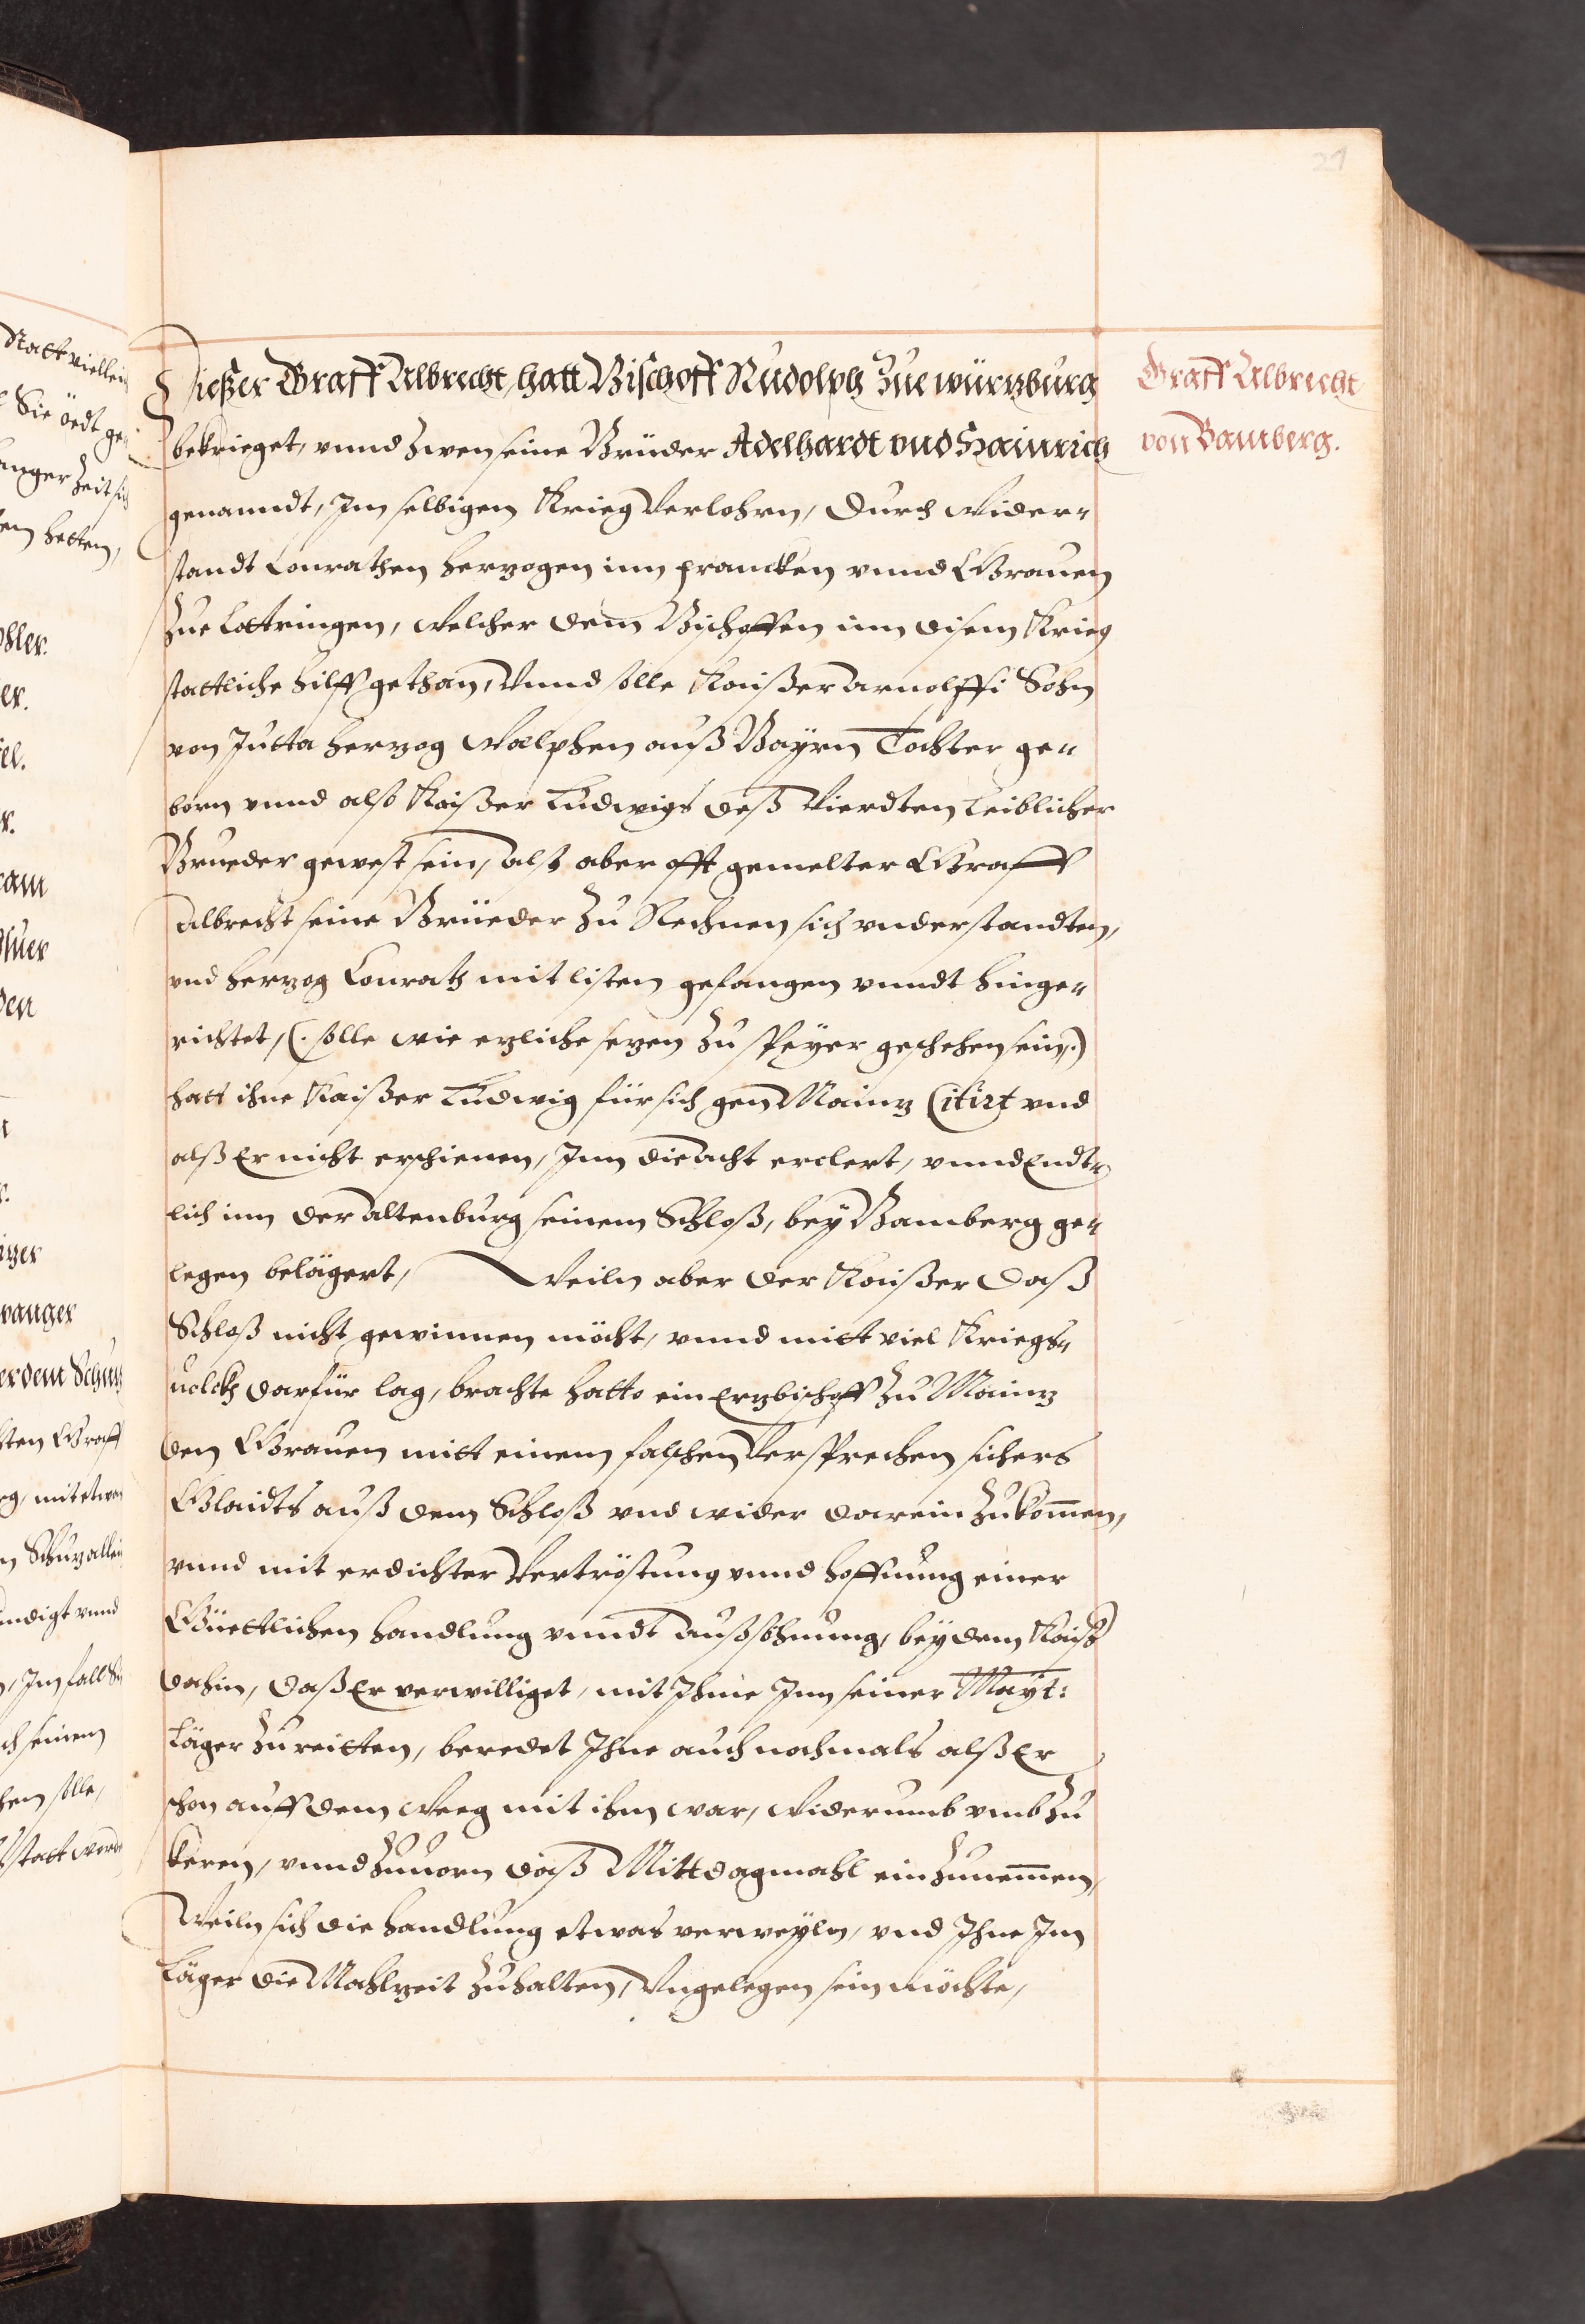 21
Graff Albrecht
von Bamberg.
Dießer Graff Albrecht, hatt Bischoff Rudolph Zue würzburg
bekrieget, vnnd zwen seine Brüder Adelhardt vnd Hainrich
genanndt, Inn selbigen Krieg Verlohrn, durch Wider-
standt Conrathen herzogen inn francken vnnd Grauen
Zue Lottringen, welcher dem Bischoffen inn disem Krieg
stattliche hilff gethan, Vnnd solle Kaißer Arnolffi Sohn
von Jutta herzog Walphen auß Bayrn Tochter ge-
born vnnd also Kaißer Ludwigs deß Vierdten Leiblicher
Brueder gewest sein, alß aber offt gemelter Graff
Albrecht seine Brüeder zu Rechnen sich vnderstandten,
vnd herzog Conrath mit listen gefangen vnndt hinge-
richtet, (. solle wie ezliche sezen zu Speyer geschehen sein,.)
hatt ihne Kaißer Ludwig für sich gen Mainz Citirt vnd
alß Er nicht erschienen, Inn die Acht erclert, vnnd Endt-
lich inn der Altenburg seinem Schloß, bey Bamberg ge-
legen belägert, Weiln aber der Kaißer daß
Schloß nicht gewinnen möcht, vnnd mitt viel Kriegs-
uolckh darfür lag, brachte hatto ein Erzbischoff zu Mainz
den Grauen mitt einem falschen Versprechen sichers
Glaidts auß dem Schloß vnd wider darein zukommen,
vnnd mit erdichter Vertröstung vnnd hoffnung einer
Güettlichen handlung vnndt Außsöhnung, bey dem Kaiß
dahin, daß Er verwilliget, mit Ihme Inn seiner Mayt:
Läger zu reitten, beredet Ihne auch nochmals alß Er
schon auff dem Weeg mit ihm war, widerumb vmb zu
keren, vnnd zuuorn daß Mittdagmahl ein zunemmen,
Weiln sich die handlung etwas verweyln, vnd Ihne Im
Läger die Mahlzeit zuhalten, Vngelegen sein möchte,